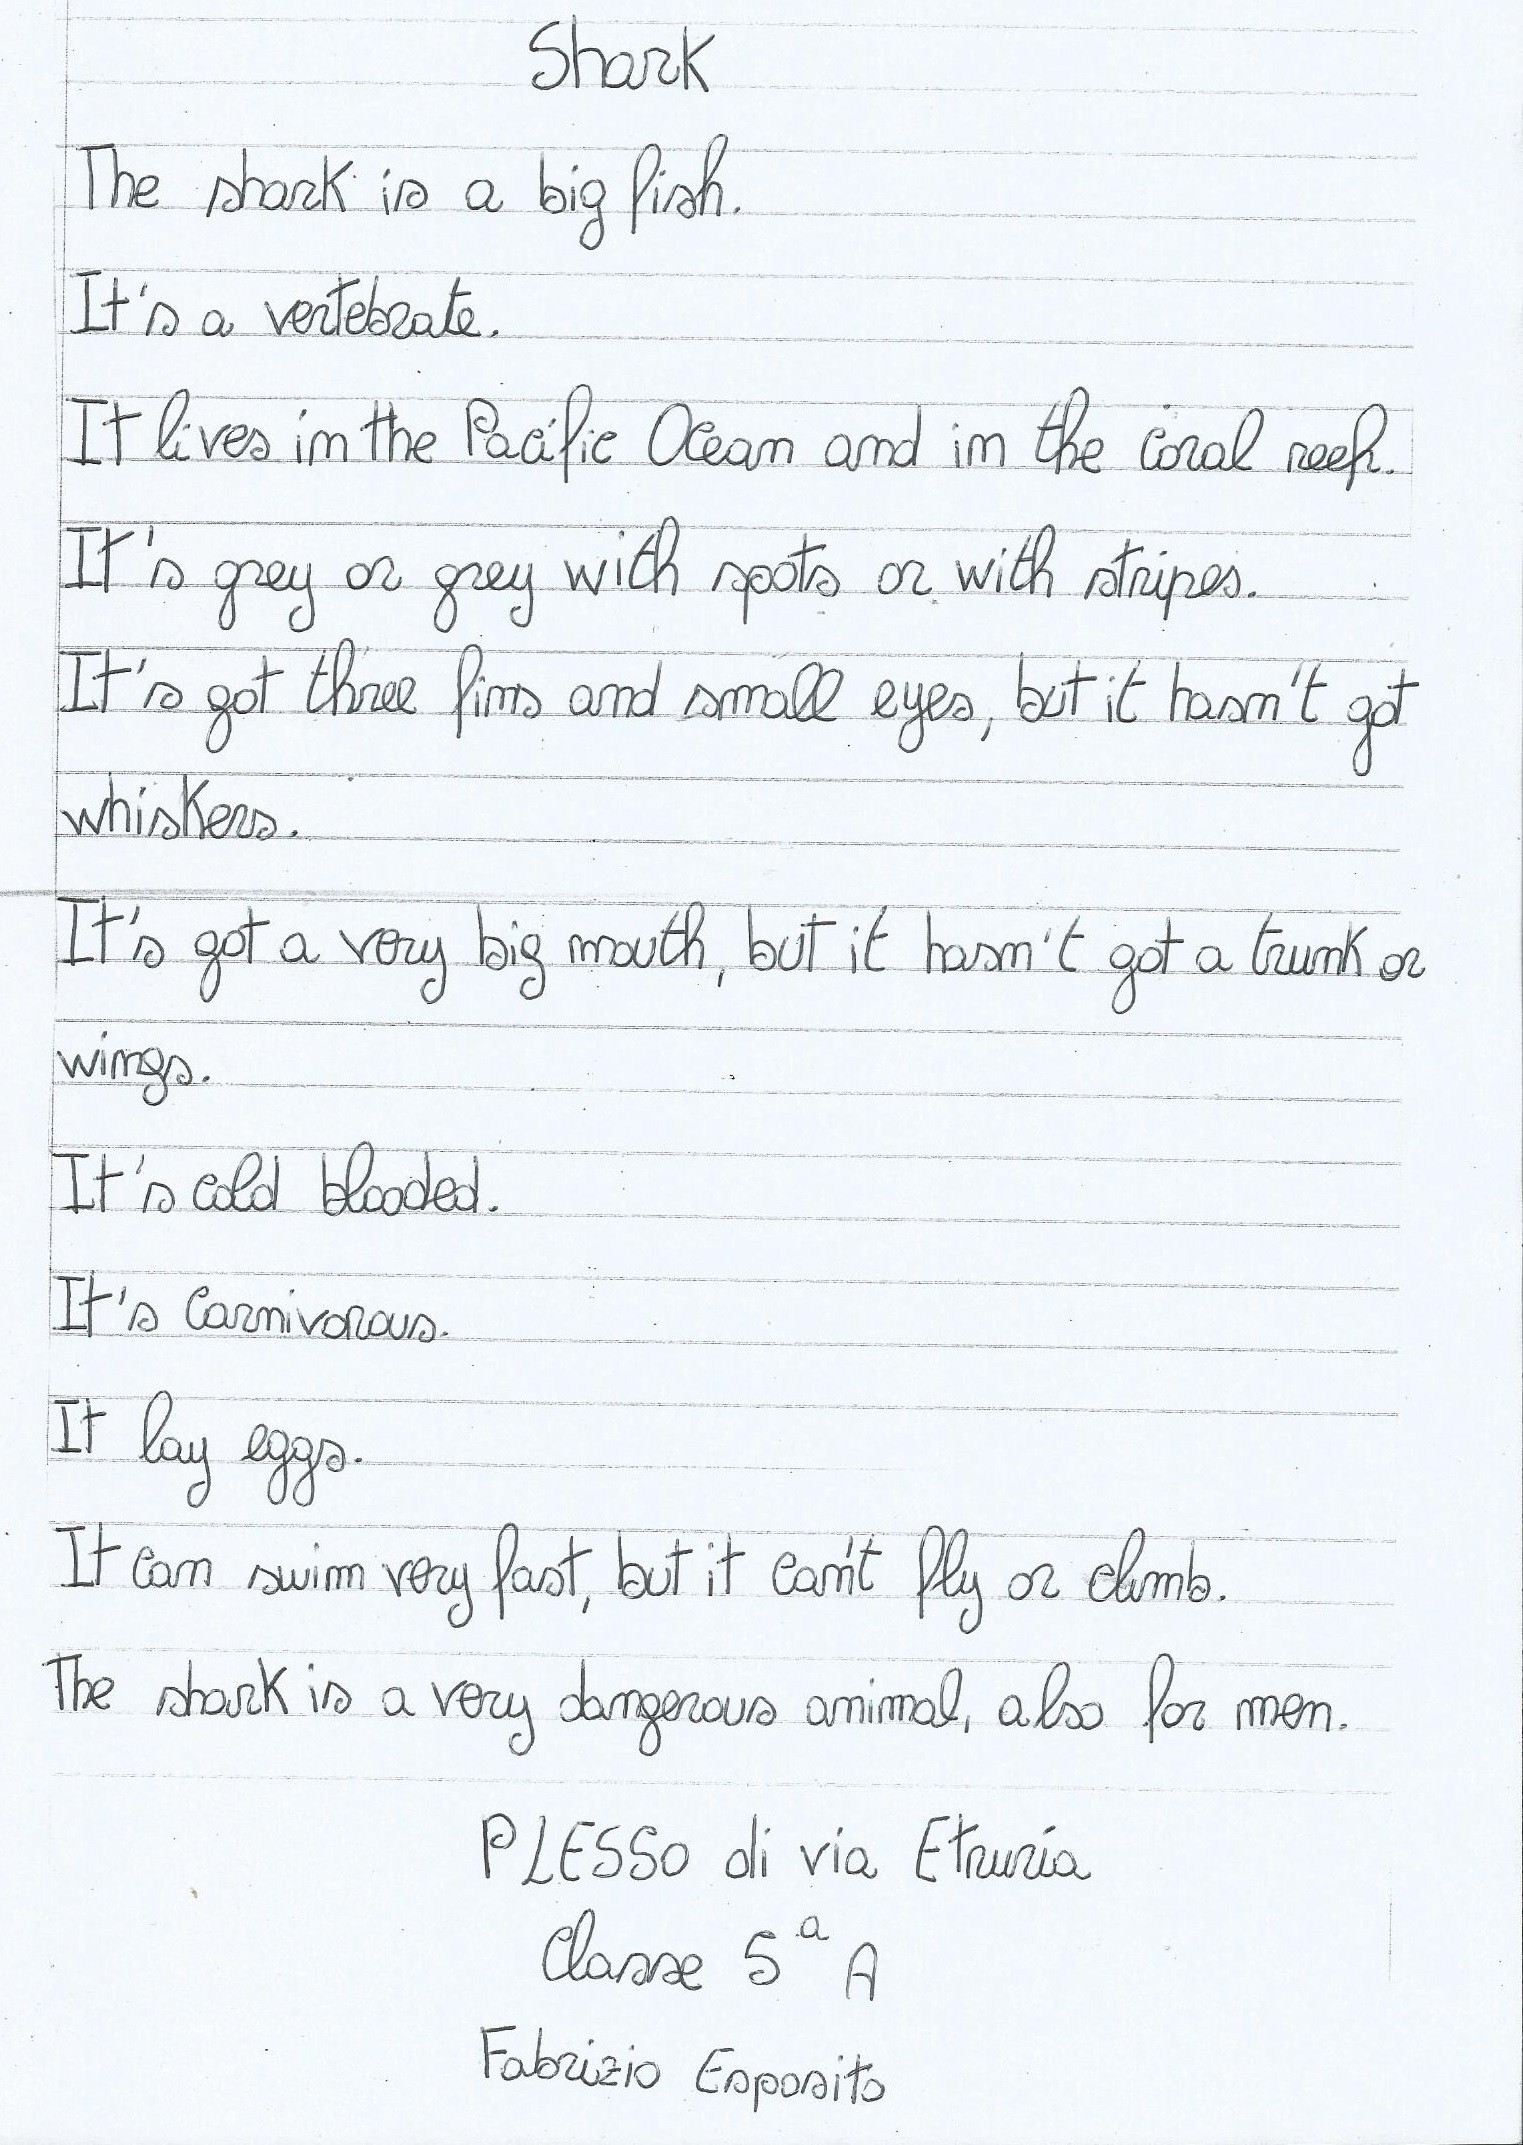 Shark
The shark is a big fish.
It's a vertebrate.
It lives in the Pacific Ocean and in the coral reef.
It's grey or grey with spots or with stripes.
It's got three fins and small eyes, but it hasn't got
whiskers.
It's got a very big mouth, but it hasn't got a trunk or
wings.
It's cold blooded.
It's carnivorous.
It lay eggs.
It can swim very fast, but it can't fly or climb.
The shark is a very dangerous animal, also for men.
PLESSO di via Etruria
Classe 5ª A
Fabrizio Esposito